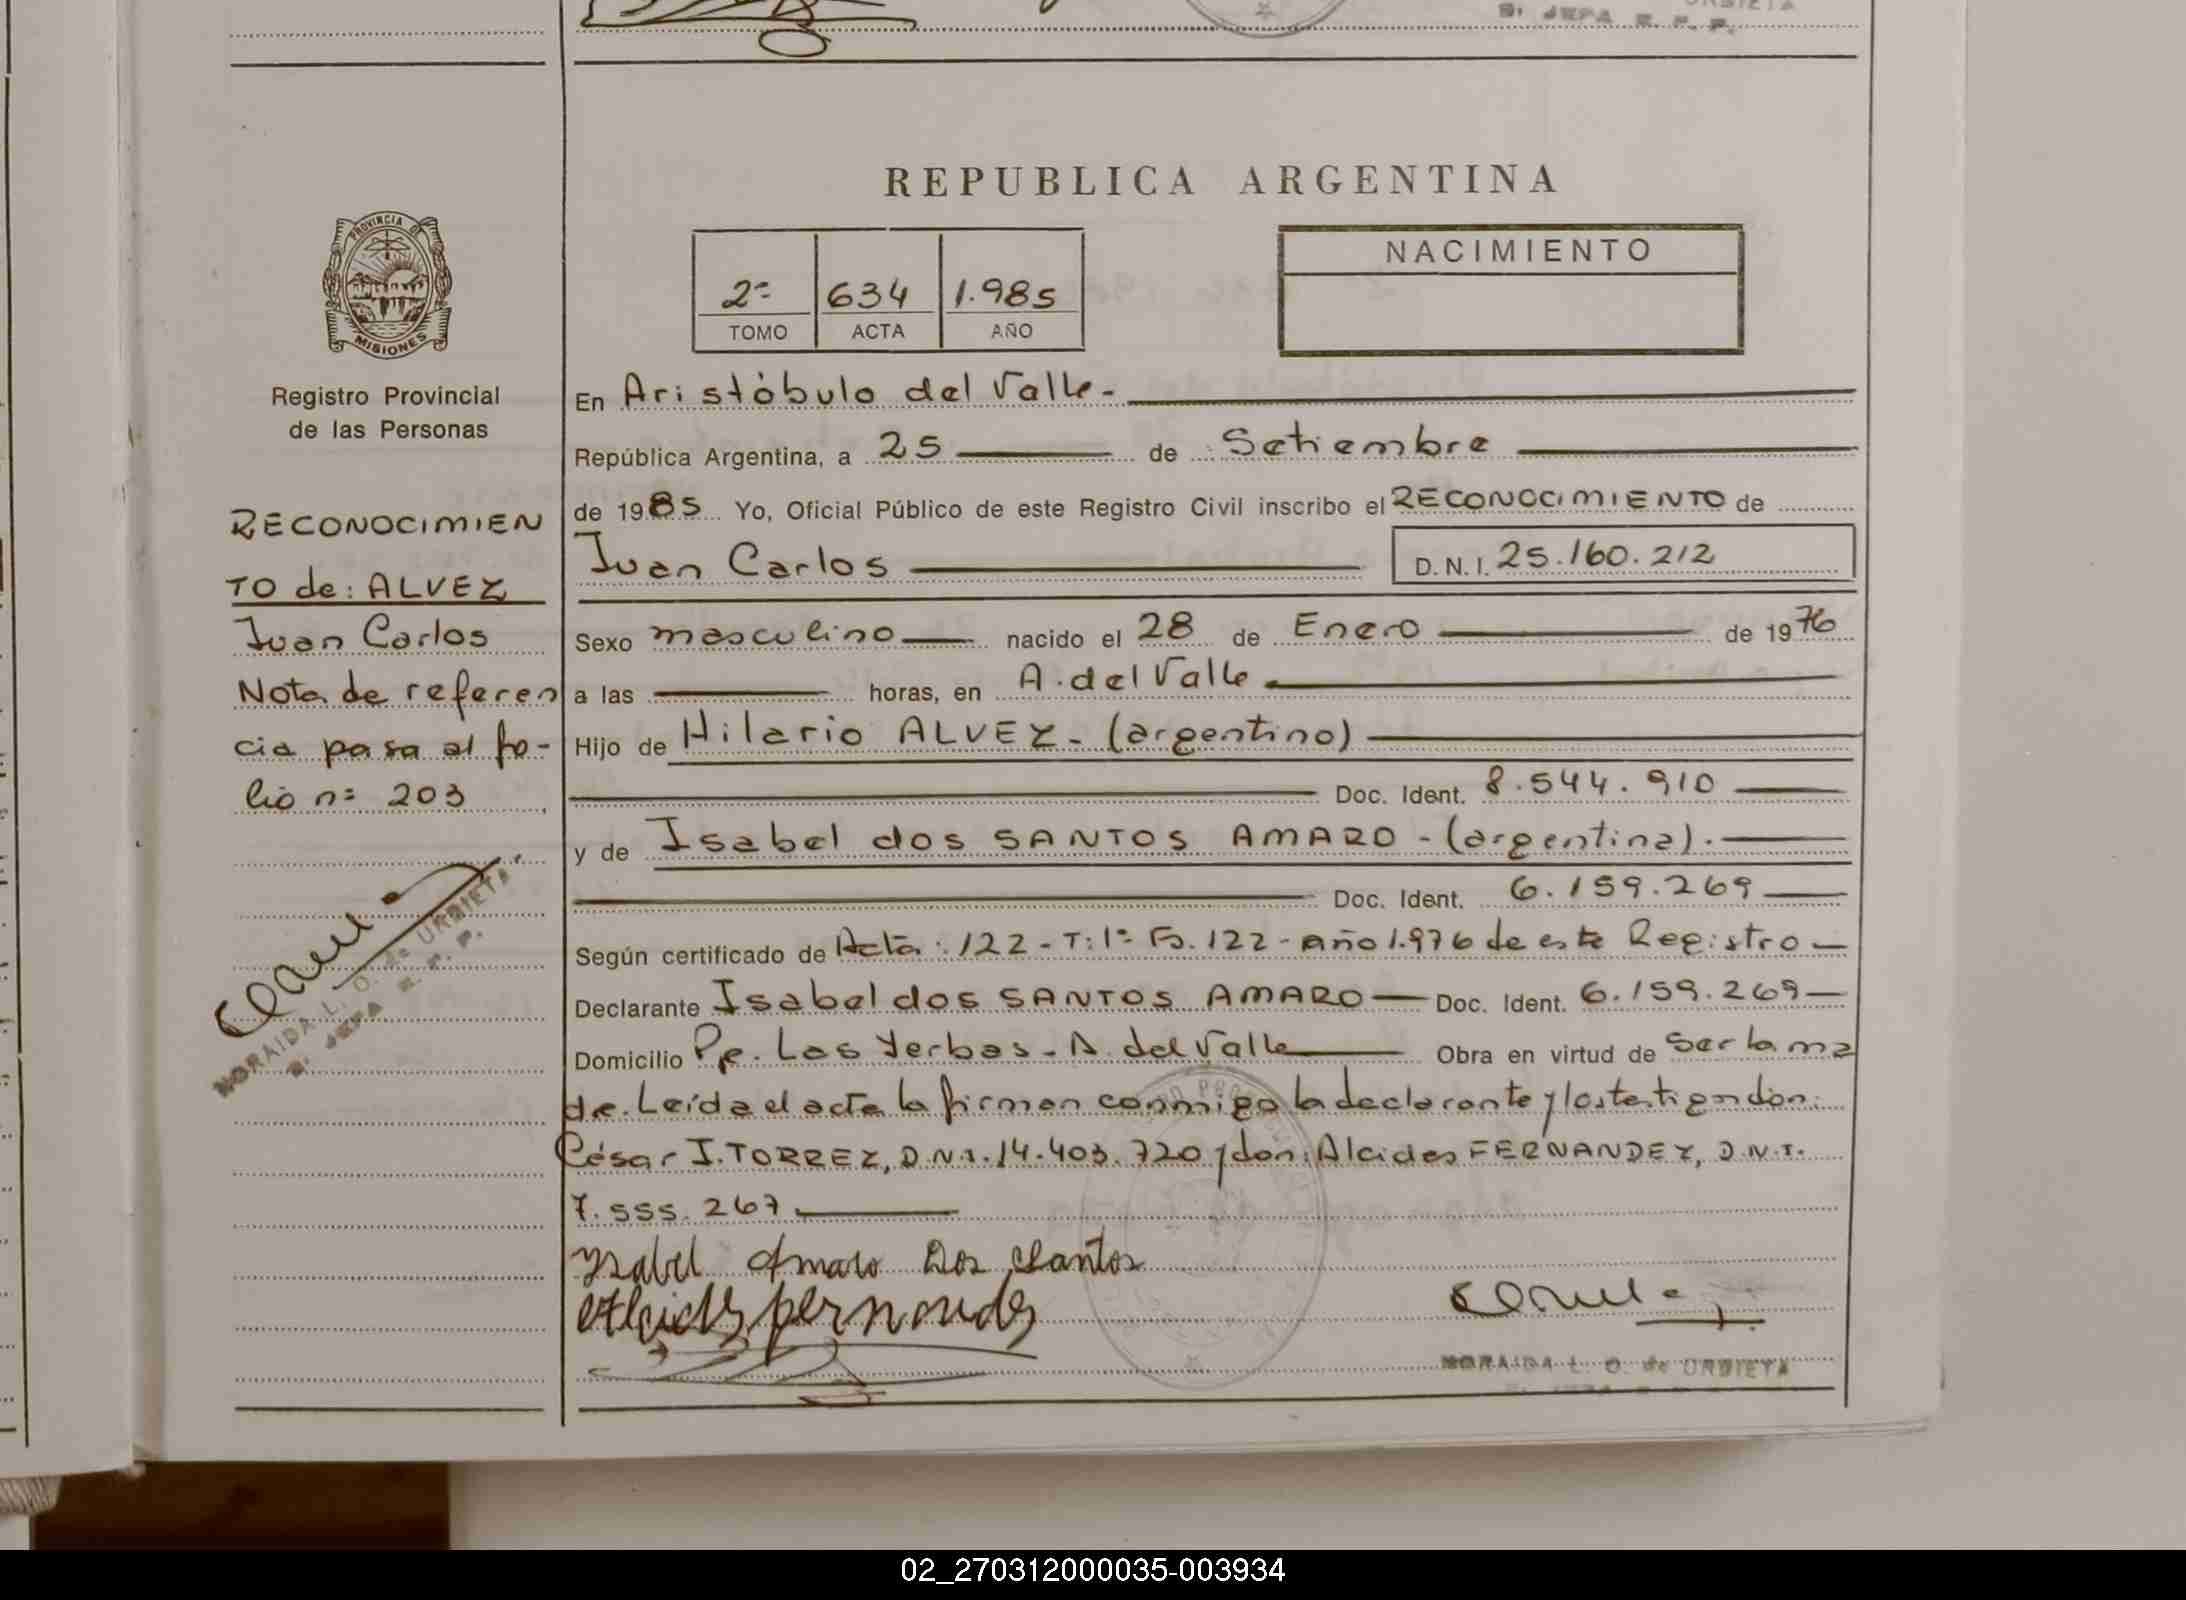 URBIETA
REPUBLICA ARGENTINA
PROVINCIA DE
MISIONES
2º 634 1.985
TOMO ACTA AÑO
NACIMIENTO
Registro Provincial
de las Personas
RECONOCIMIEN
TO de: ALVEZ
Juan Carlos
Nota de referen
cia pasa al fo-
lio nº 203
NORAIDA L. O. de URBIETA
En Aristóbulo del Valle.-
República Argentina, a 25 de Setiembre
de 1985 Yo, Oficial Público de este Registro Civil inscribo el RECONOCIMIENTO de
Juan Carlos D.N.I. 25.160.212
Sexo masculino nacido el 28 de Enero de 1976
a las horas, en A. del Valle
Hijo de Hilario ALVEZ.- (argentino)
Doc. Ident. 8.544.910
y de Isabel dos SANTOS AMARO - (argentina).
Doc. Ident. 6.159.269
Según certificado de Acta: 122 - T: 1º Fo. 122 - año 1.976 de este Registro
Declarante Isabel dos SANTOS AMARO Doc. Ident. 6.159.269
Domicilio Pje. Las Yerbas - A. del Valle Obra en virtud de Ser la ma
dre. Leída el acta la firman conmigo la declarante y los testigos don:
César I. TORREZ, D.N.I. 14.403.720 y don: Alcides FERNANDEZ, D.N.I.
7.555.267
Ysabel Amaro Dos Santos
Alcides fernandes
NORAIDA L. O. de URBIETA
02_270312000035-003934